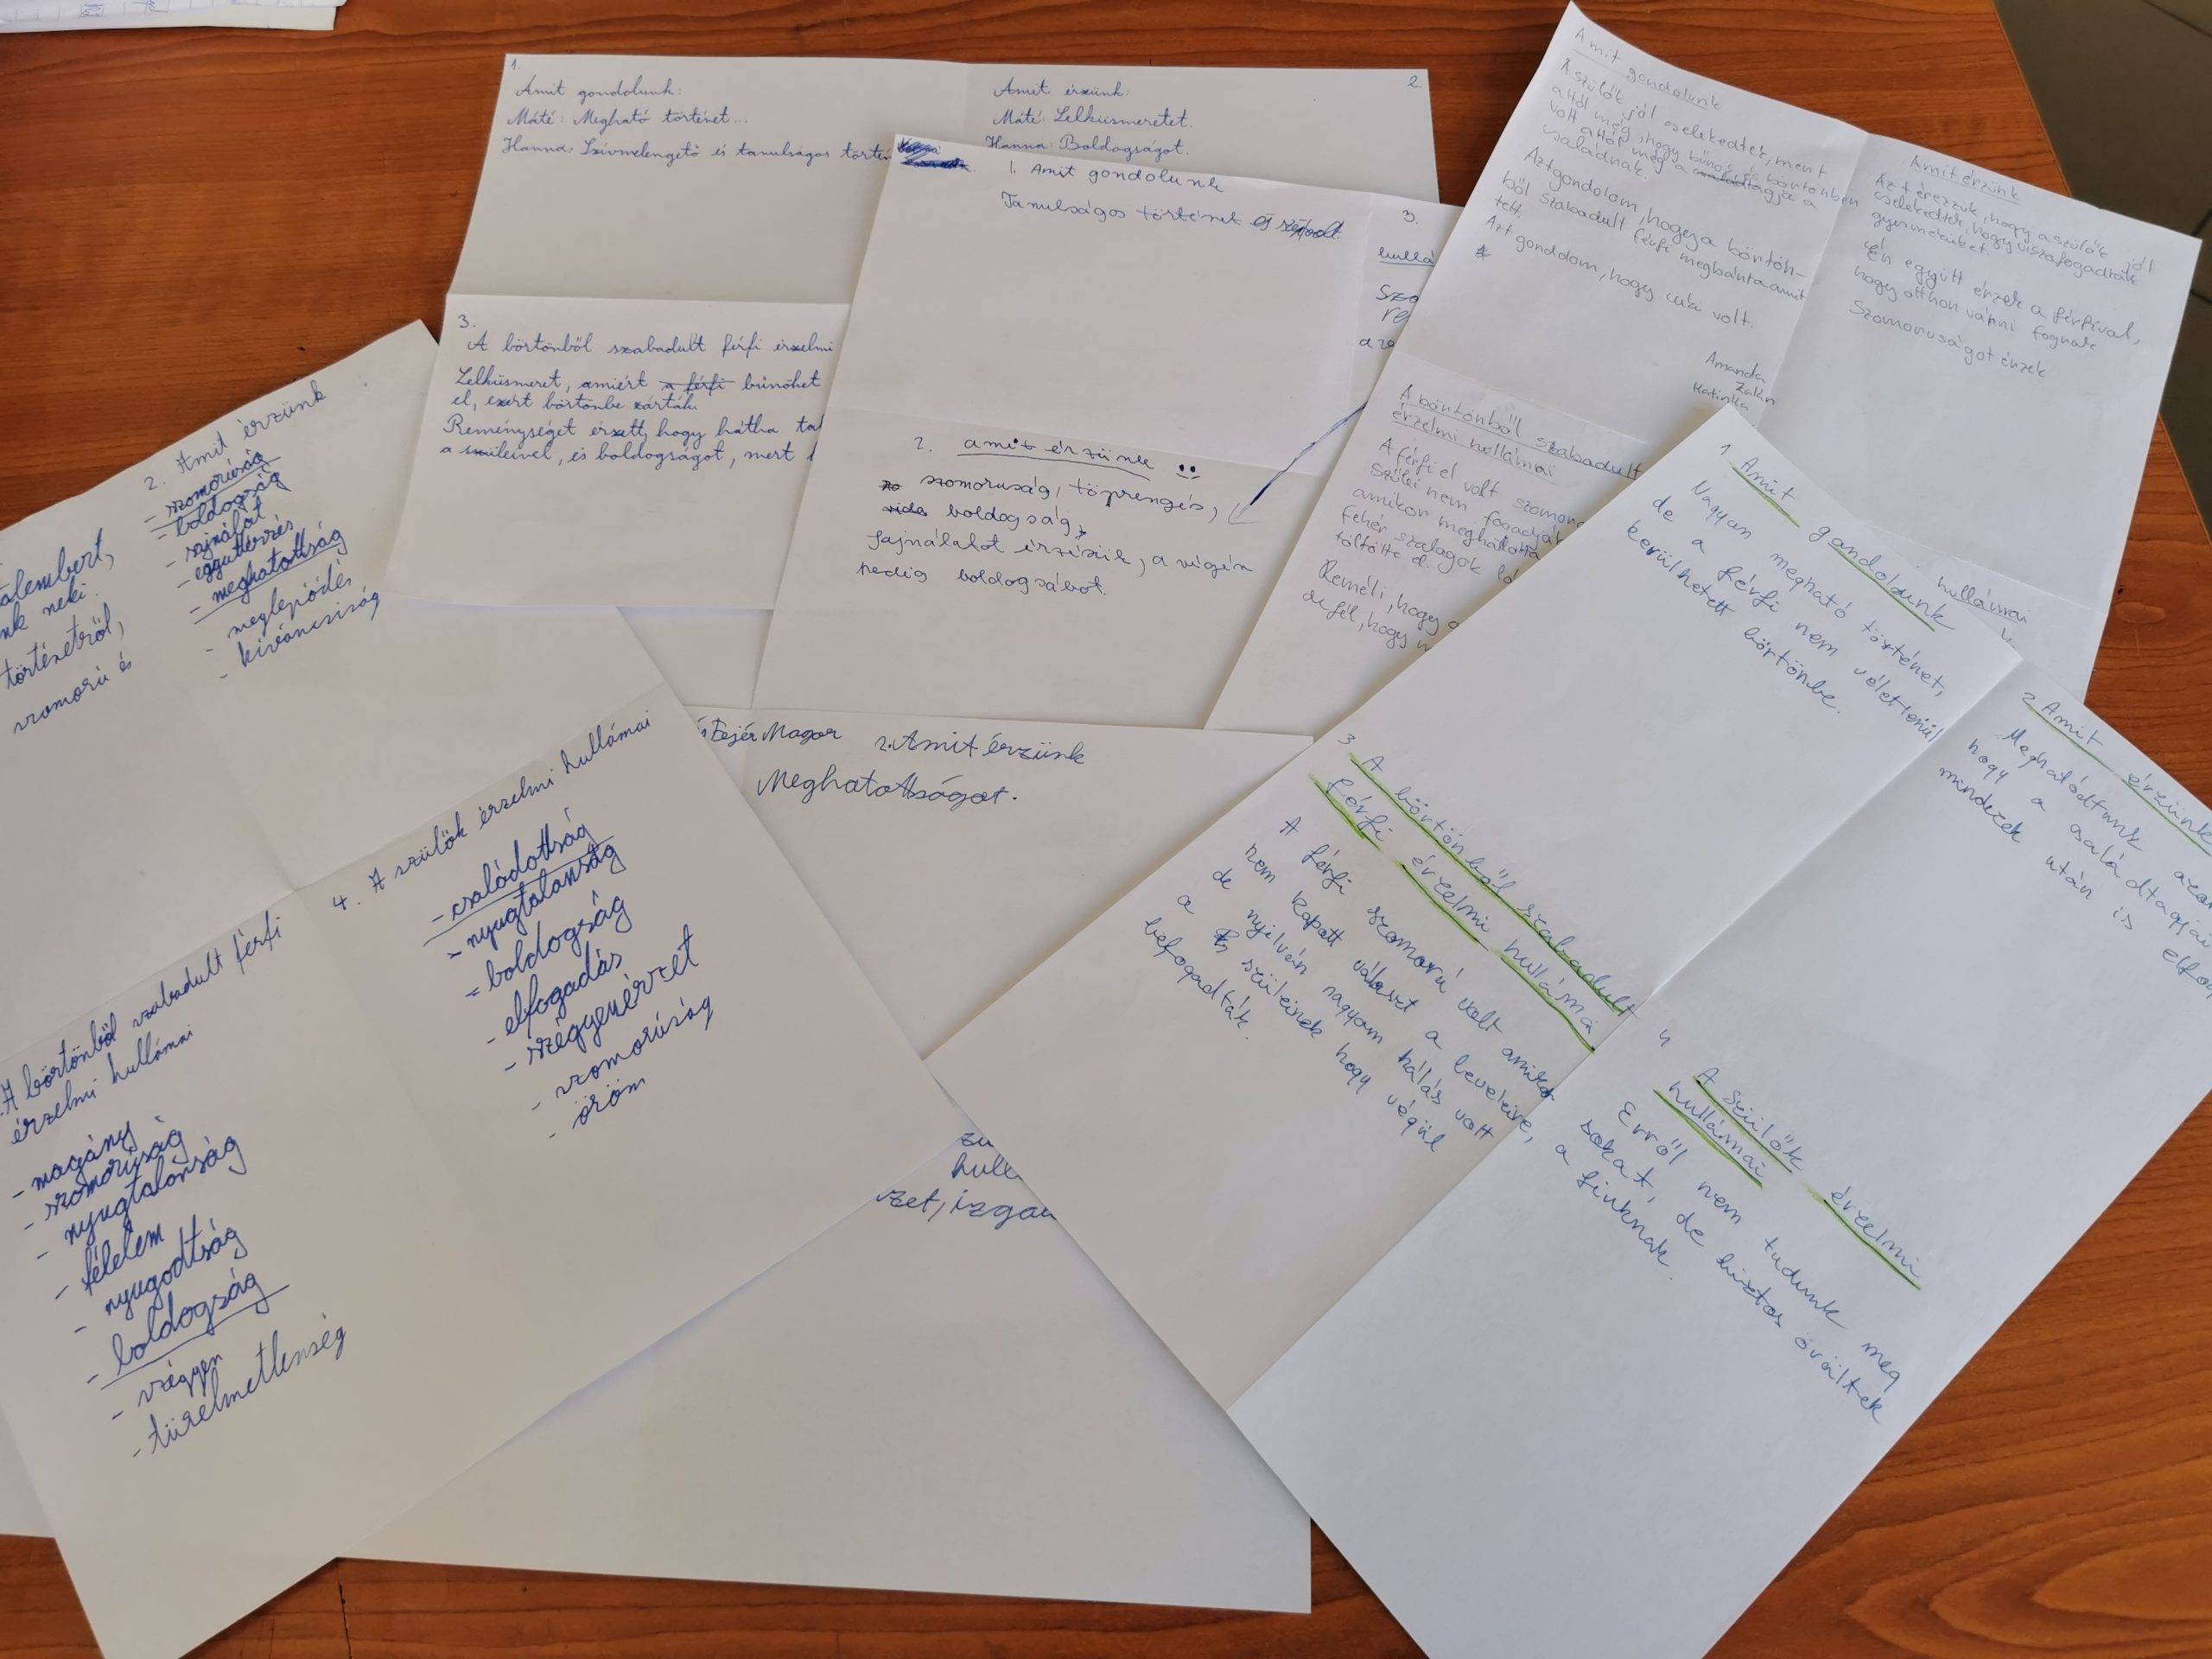 1.
Amit gondolunk:
Máté: Megható történet...
Hanna: Szívmelengető és tanulságos
2
Amit érzünk:
Máté: Lelkiismeretet.
Hanna: Boldogságot.
3.
A börtönből szabadult férfi érzelmi
Lelkiismeret, amiért a férfi bűnöket
el, ezért börtönbe zárták.
Reménységet érzett, hogy hátha
a szüleivel, és boldogságot, mert
1. Amit gondolunk
Tanulságos történet és
2. amit érzünk
szomoruság, töprengés,
boldogság,
sajnálatot érzésük, a végén
pedig boldogságot.
3.
Amit gondolunk
A szülők jól cselekedtek, mert
attól még, hogy bűnös és börtönben
volt attól még a tagja a
családnak.
Azt gondolom, hogy a börtön-
ből szabadult férfi megbánta amit
tett.
Azt gondolom, hogy cuki volt.
Amanda
Zalán
Katinka
Amit érzünk
Azt érezzük, hogy a szülők jól
cselekedtek, hogy visszafogadták
gyermeküket.
Én együtt érzek a férfival,
hogy otthon várni fognak
Szomoruságot érzek
A börtönből szabadult
érzelmi hullámai
A férfi el volt
szülei nem fogadják
amikor meghallotta
fehér szalagok
töltötte el.
Reméli, hogy
de fél, hogy
hullámai
1 Amit gondolunk
Nagyon megható történet,
de a férfi nem véletlenül
kerülhetett börtönbe.
2 Amit érzünk
Meghatódtunk
hogy a családtagjai
mindezek után is
3 A börtönből szabadult
férfi érzelmi hullámai
A férfi szomorú volt amikor
nem kapott választ a leveleire,
de nyilván nagyon hálás volt
a szüleinek hogy végül
befogadták.
4
A szülők érzelmi
hullámai
Erről nem tudunk meg
sokat, de biztos örültek
a fiuknak.
Fejér Magor
2. Amit érzünk
Meghatottságot.
neki.
történetről,
szomorú és
2. Amit érzünk
- szomorúság
- boldogság
- sajnálat
- együttérzés
- meghatottság
- meglepődés
- kíváncsiság
A börtönből szabadult férfi
érzelmi hullámai
- magány
- szomorúság
- nyugtalanság
- félelem
- nyugodtság
- boldogság
- szégyen
- türelmetlenség
4. A szülők érzelmi hullámai
- csalódottság
- nyugtalanság
- boldogság
- elfogadás
- szégyenérzet
- szomorúság
- öröm